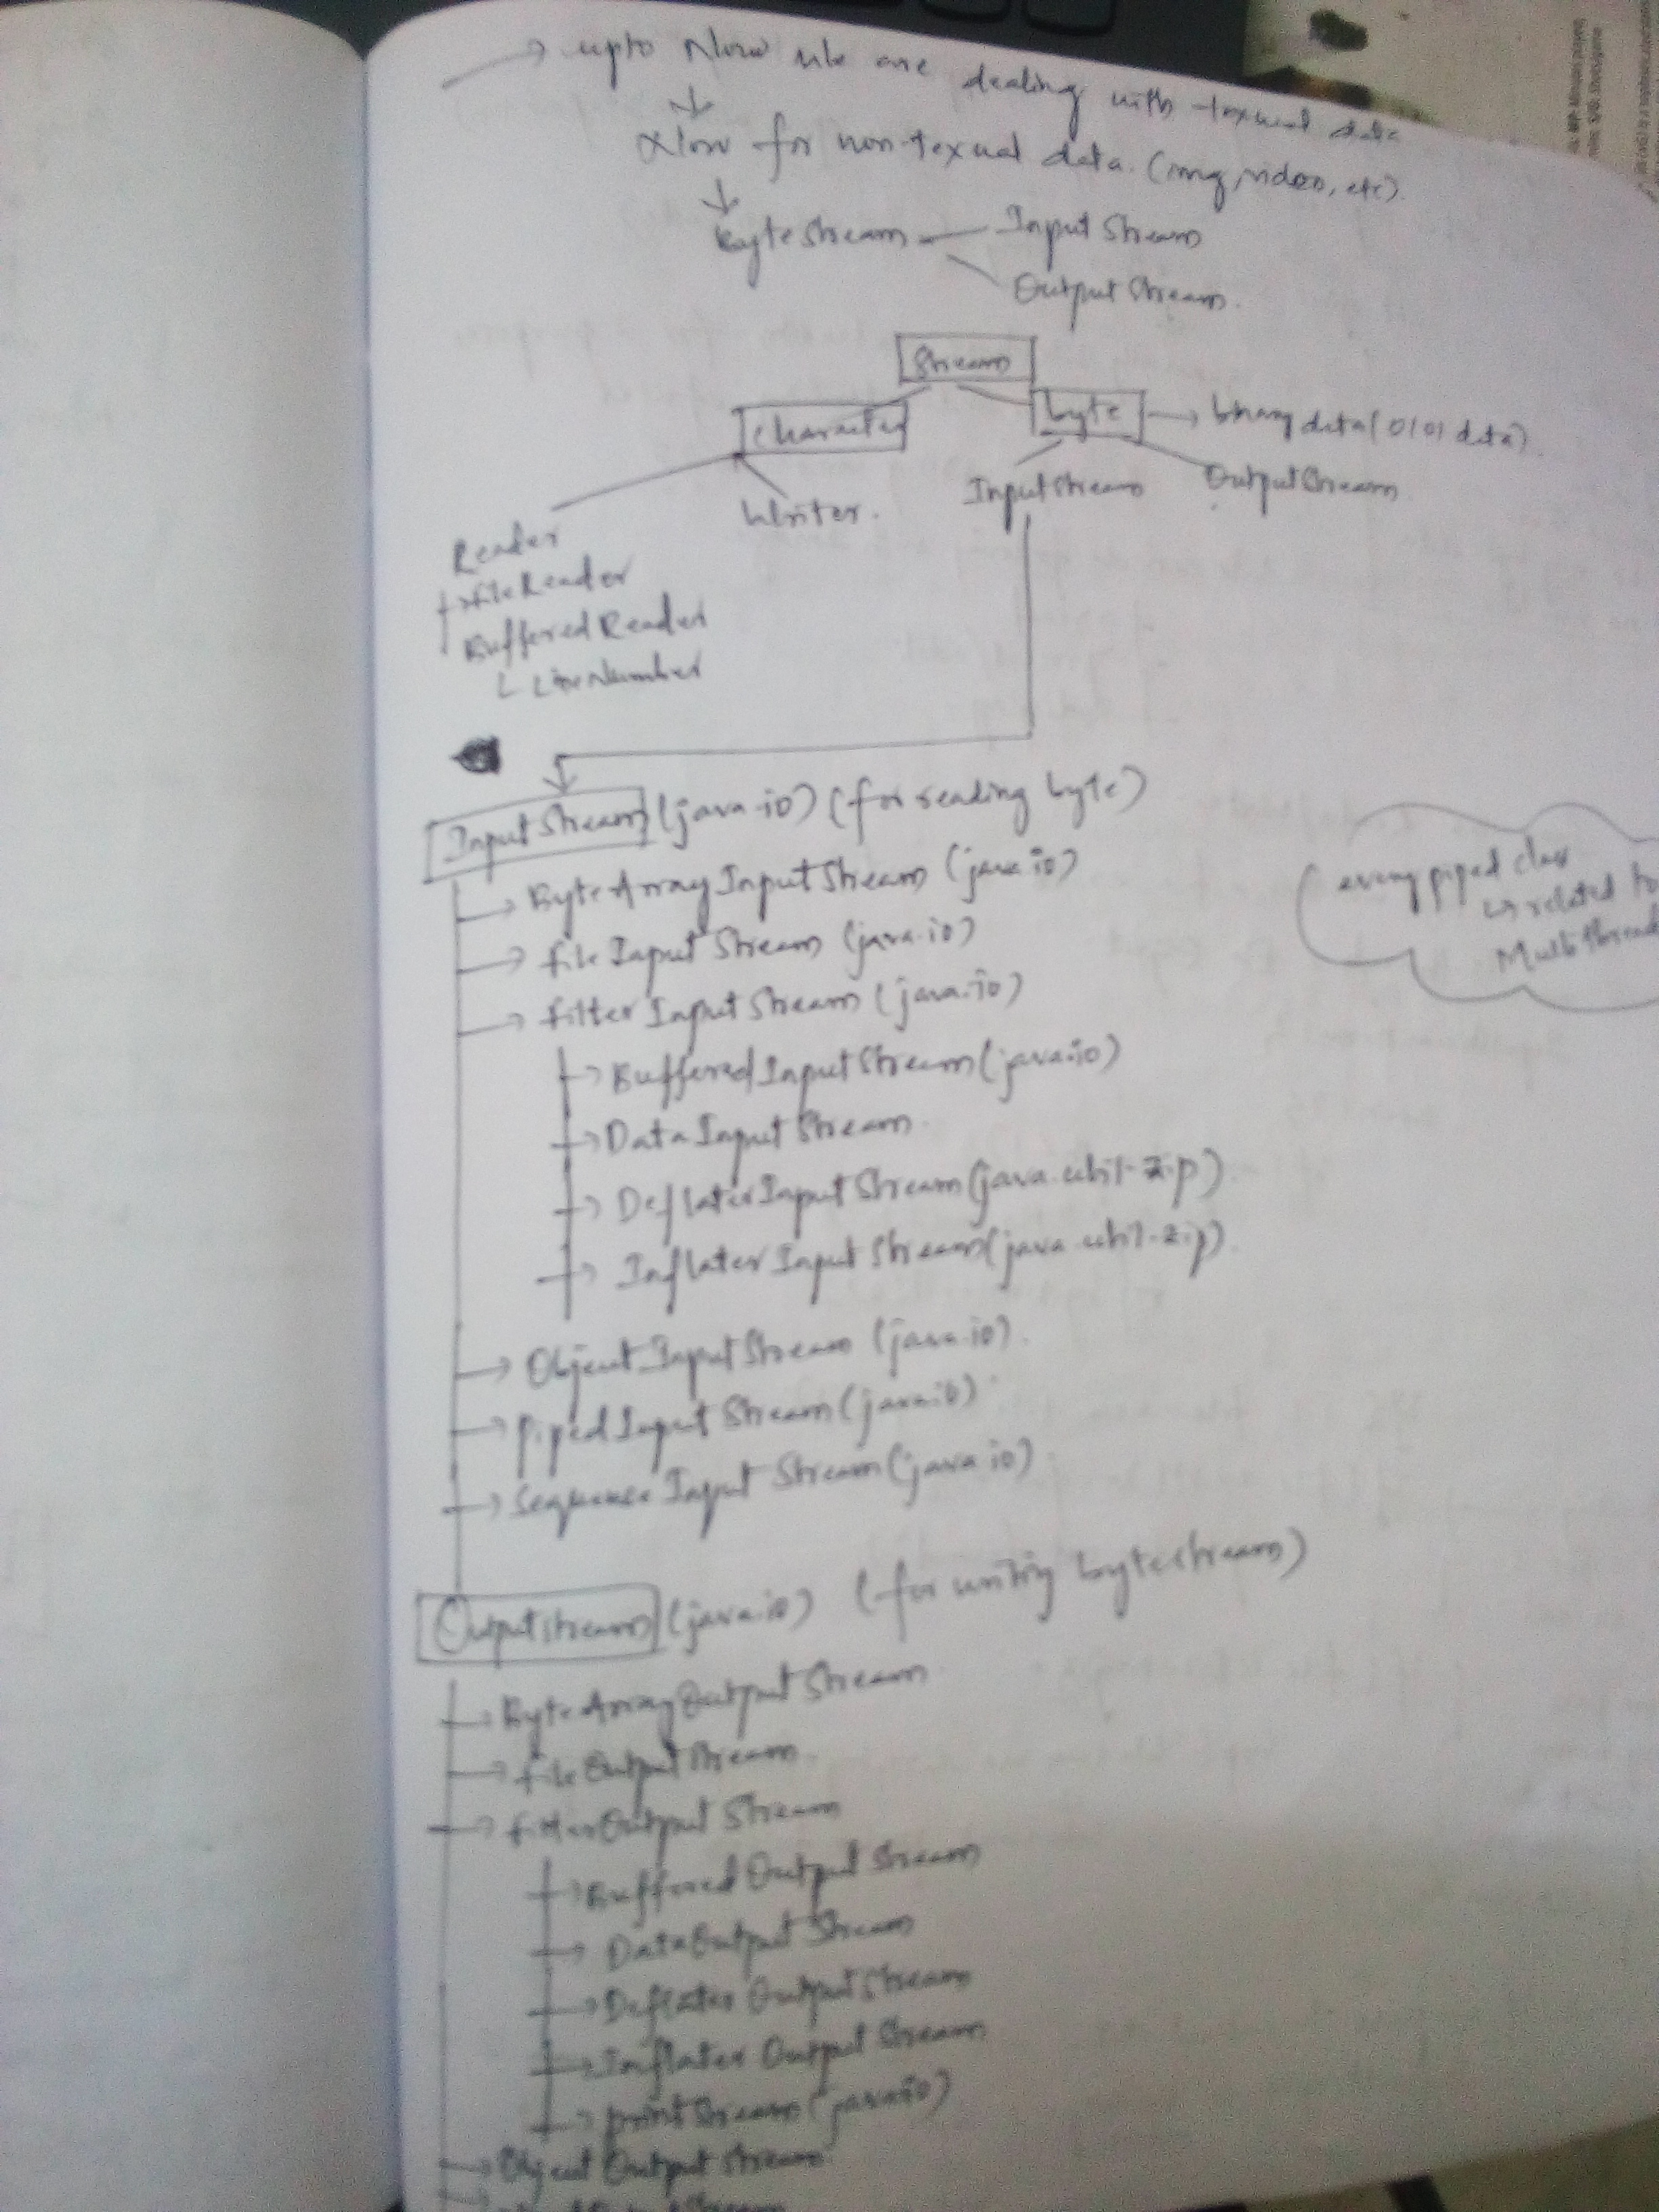 → upto Now we are dealing with texual data
Now for non-texual data. (img, video, etc).
Byte Stream — Input Stream
Output Stream.
Stream
character
byte → binary data (0101 data)
Reader
Writer.
InputStream
OutputStream
→ fileReader
Buffered Reader
└ LineNumber
Input Stream (java.io) (for reading byte)
→ ByteArrayInputStream (java.io)
→ file Input Stream (java.io)
→ filter Input Stream (java.io)
→ BufferedInputStream (java.io)
→ DataInputStream.
→ DeflaterInputStream (java.util.zip).
→ InflaterInputStream (java.util.zip).
→ ObjectInputStream (java.io).
→ PipedInputStream (java.io)
→ Sequence Input Stream (java.io)
every piped class
↳ related to
Multithread
Outputstream (java.io) (for writing bytestream)
→ ByteArrayOutputStream
→ fileOutputStream.
→ filterOutput Stream
→ Buffered Output Stream
→ DataOutput Stream
→ Deflater OutputStream
→ Inflater Output Stream
→ printStream (java.io)
→ Object Output Stream